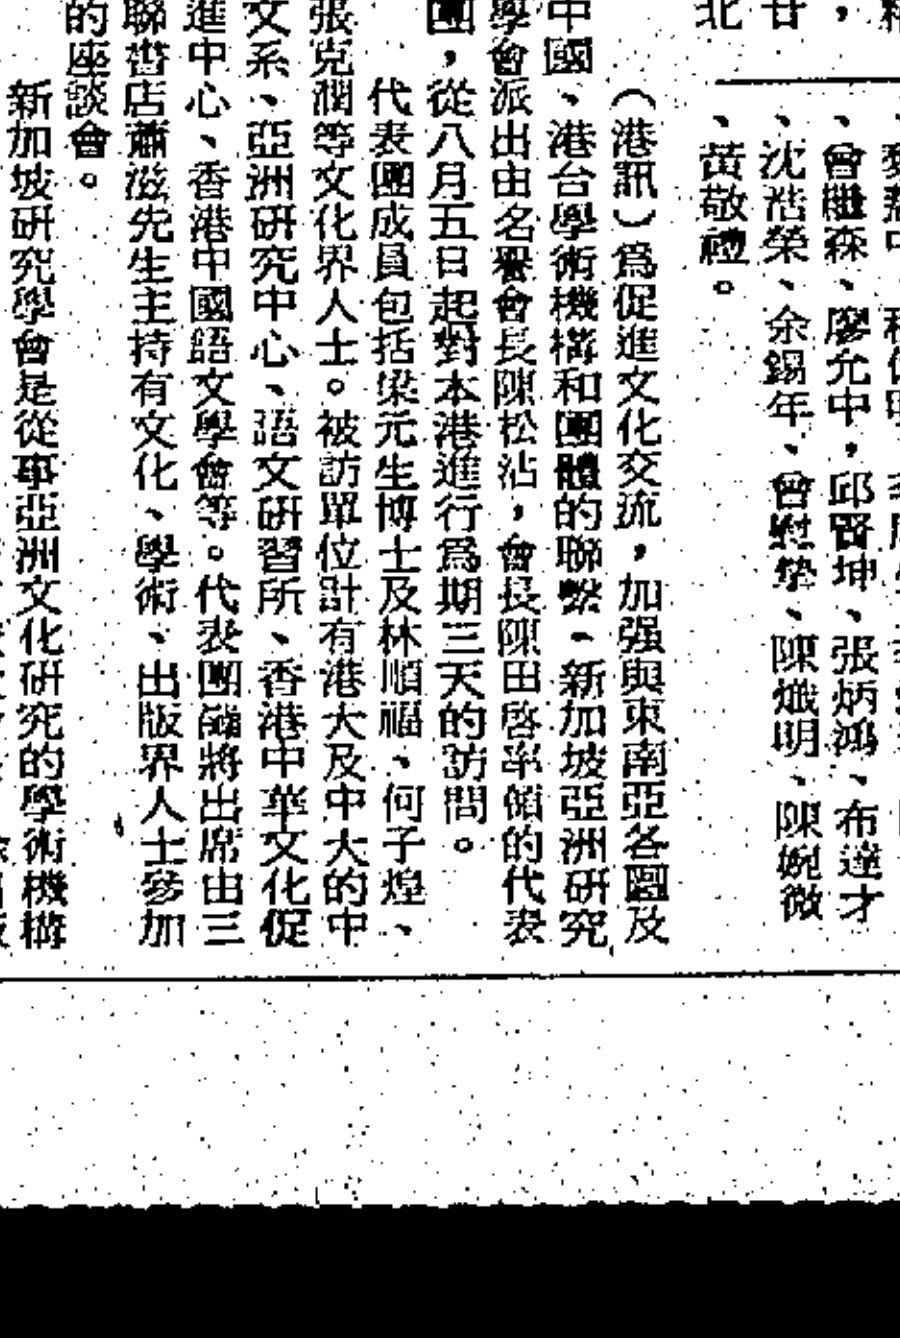 、曾繼森、廖允中，邱賢坤、張炳鴻、布達才
、沈浩榮、余錫年、曾慰摯、陳熾明、陳婉微
、黃敬禮。
（港訊）爲促進文化交流，加强與東南亞各國及
中國、港台學術機構和團體的聯繫、新加坡亞洲研究
學會派出由名譽會長陳松沾，會長陳田啓率領的代表
團，從八月五日起對本港進行爲期三天的訪問。
代表團成員包括梁元生博士及林順福、何子煌、
張克潤等文化界人士。被訪單位計有港大及中大的中
文系、亞洲研究中心、語文研習所、香港中華文化促
進中心、香港中國語文學會等。代表團並將出席由三
聯書店蕭滋先生主持有文化、學術、出版界人士參加
的座談會。
新加坡研究學會是從事亞洲文化研究的學術機構